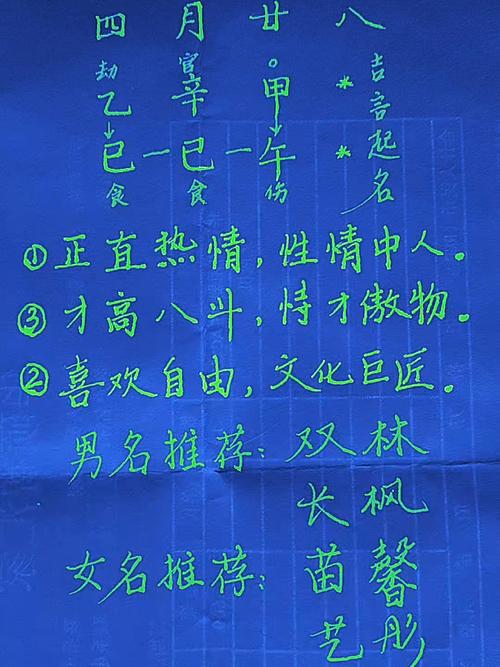 四月廿八
劫 官
乙 辛 甲 *
巳一巳一午 *
食 食 伤
吉言起名
①正直热情，性情中人。
③才高八斗，恃才傲物。
②喜欢自由，文化巨匠。
男名推荐：双林
长枫
女名推荐：苗馨
艺彤